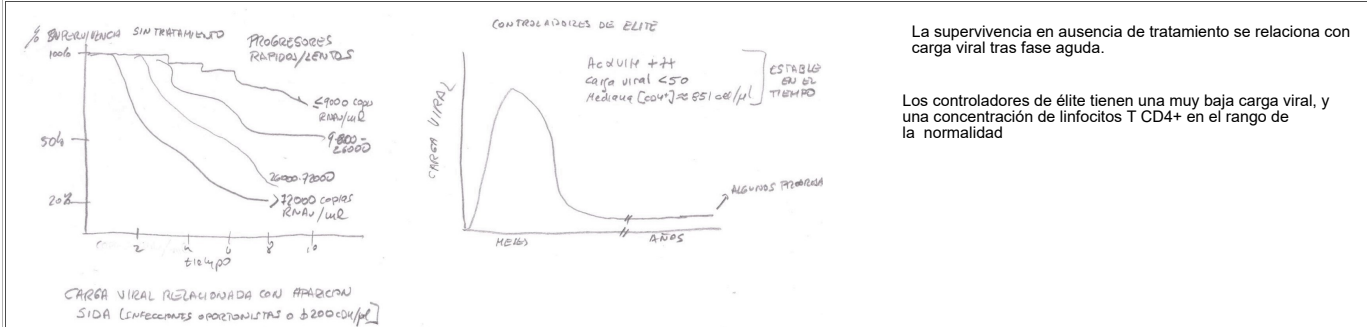 % SUPERVIVENCIA SIN TRATAMIENTO
PROGRESORES
RAPIDOS/LENTOS
100%
50%
20%
≤9000 copias
RNAv/mL
26000
26000-72000
>72000 copias
RNAv/mL
2 4 6 8 10
tiempo
CARGA VIRAL RELACIONADA CON APARICION
SIDA (INFECCIONES OPORTUNISTAS O
CONTROLADORES DE ELITE
CARGA VIRAL
AcαVIH +++
Carga viral <50
Mediana [CD4+] ≈ 851 cel/µl
ESTABLE
EN EL
TIEMPO
ALGUNOS
MESES
AÑOS
La supervivencia en ausencia de tratamiento se relaciona con
carga viral tras fase aguda.
Los controladores de élite tienen una muy baja carga viral, y
una concentración de linfocitos T CD4+ en el rango de
la normalidad